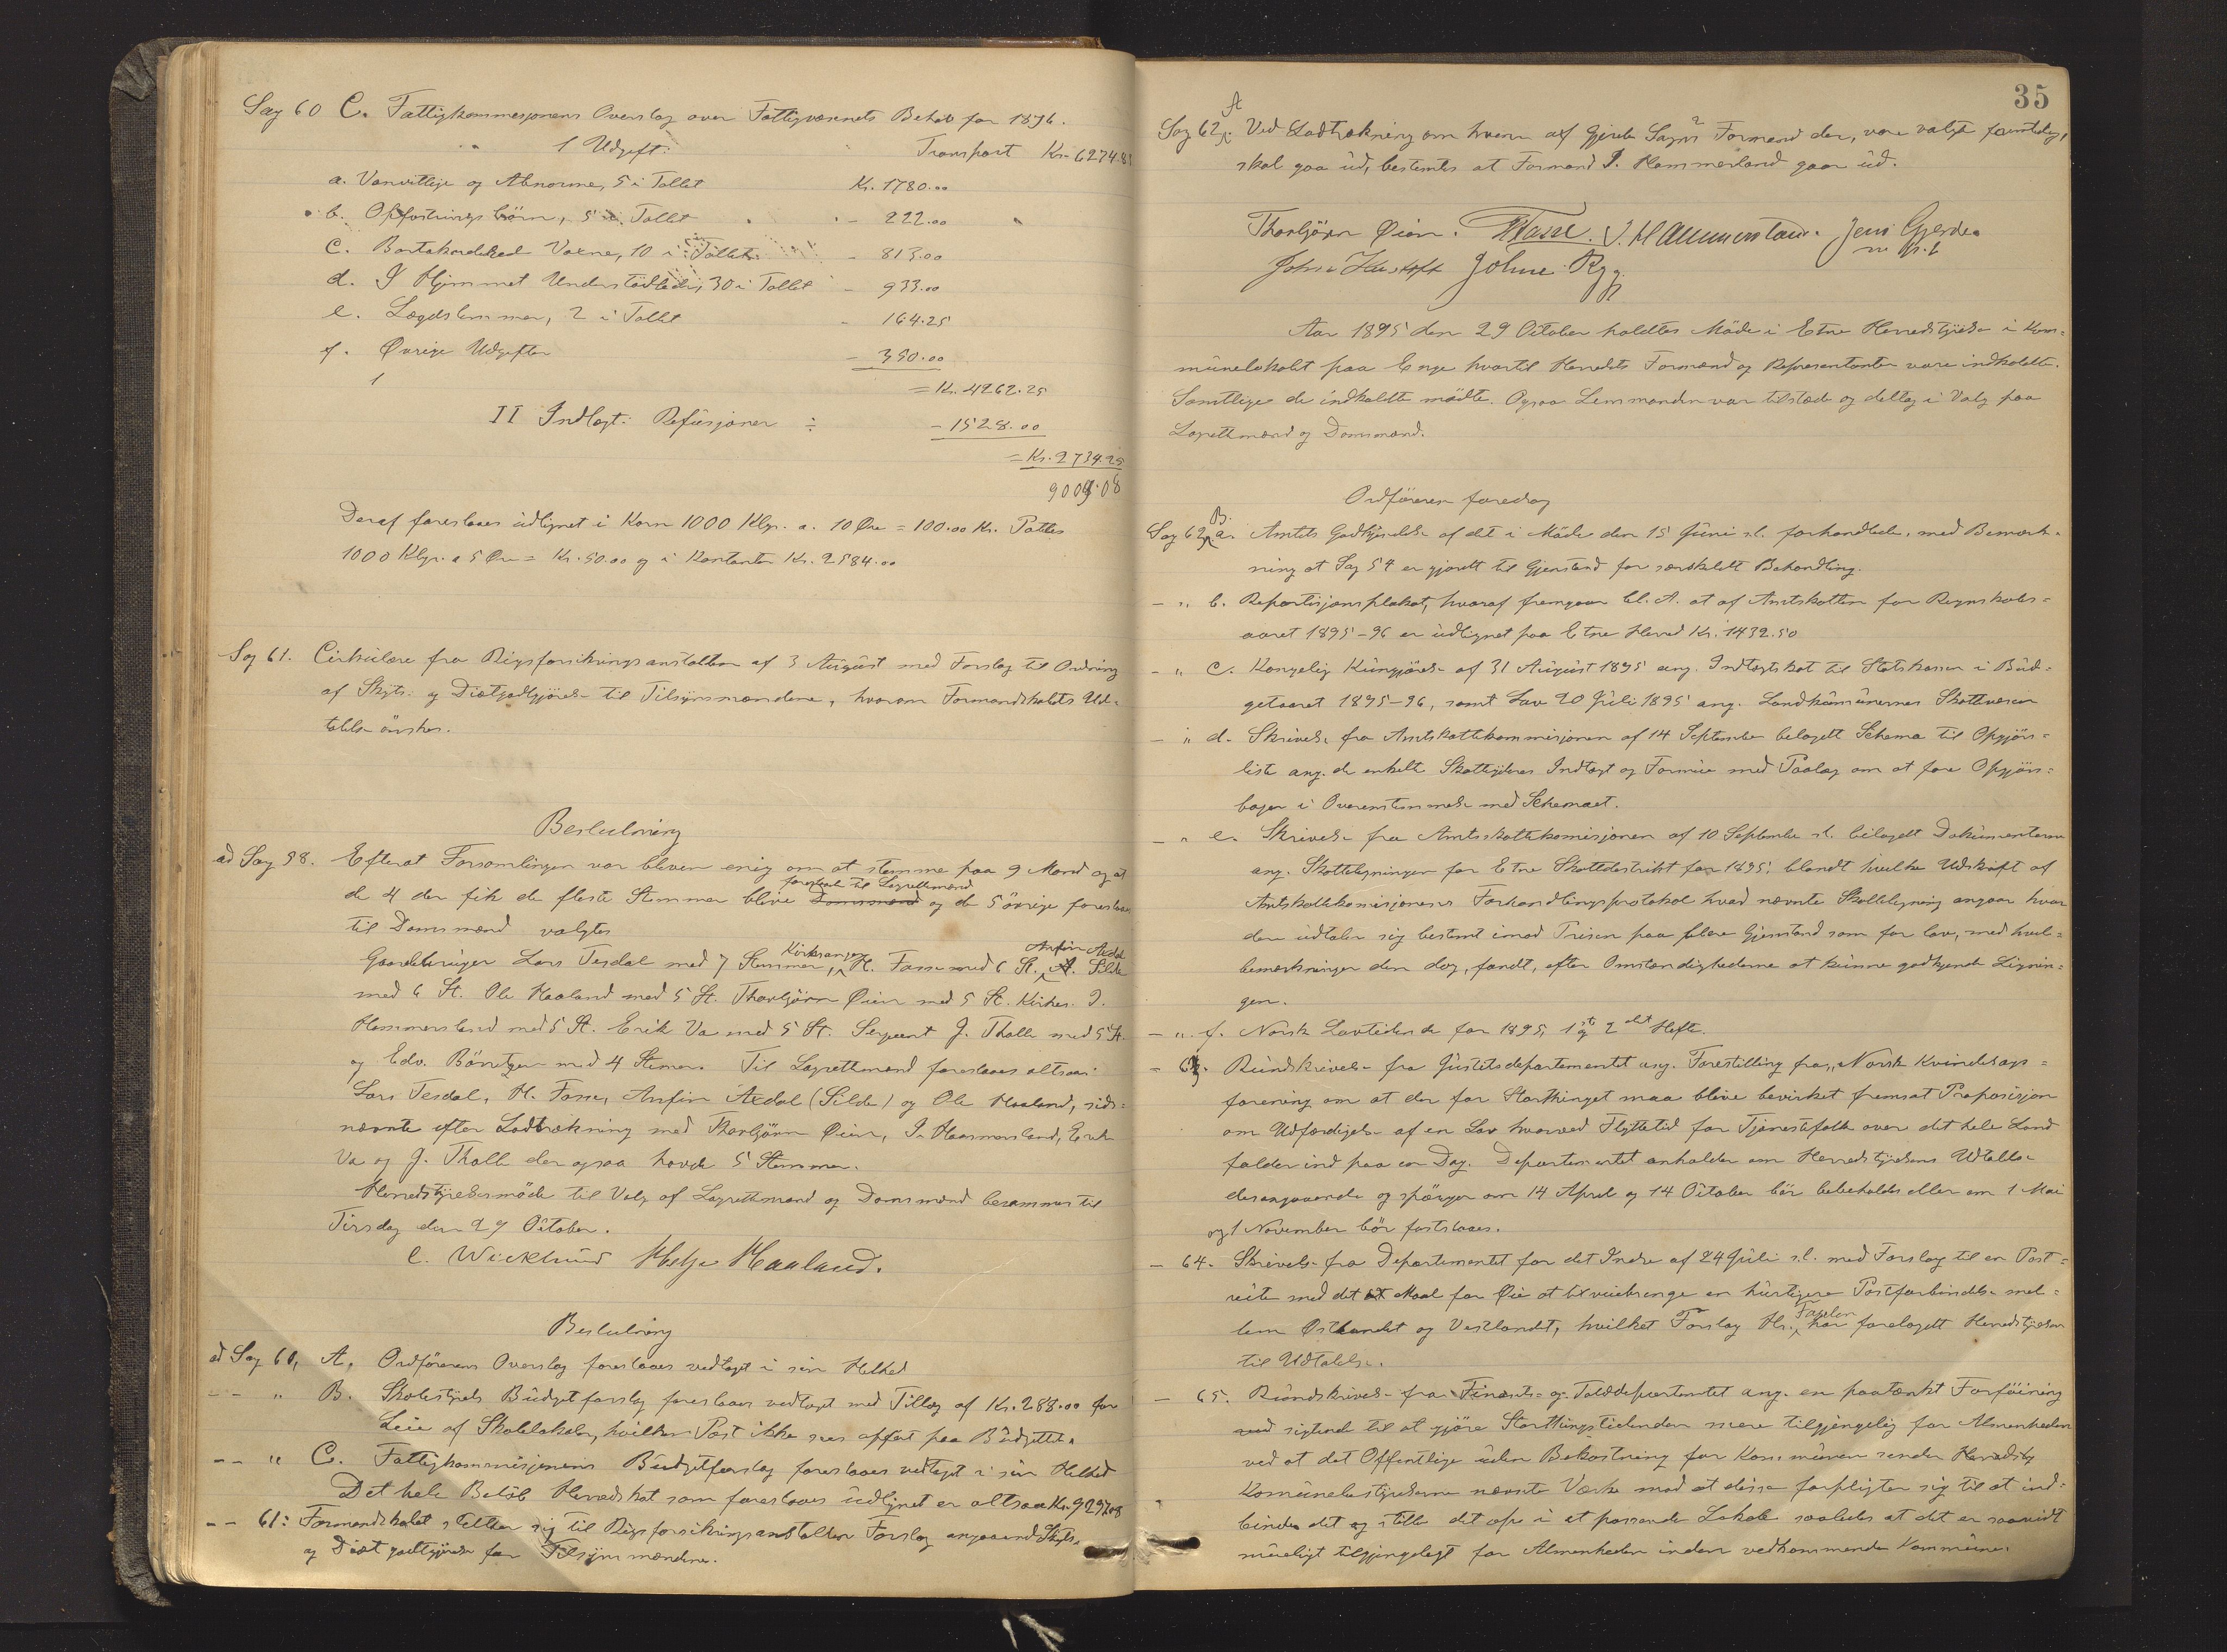 Sag 60 C. Fattigkommisjonens Overslag over Fattigvæsenets Behov for 1896.
1 Udgift: Transport Kr. 6274.83
a. Vanvittige og Abnorme, 5 i Tallet Kr. 1780.00
b. Opfostringsbörn, 5 i Tallet - 222.00
c. Bortakorderede Voxne, 10 i Tallet - 813.00
d. I Hjemmet Understöttede, 30 i Tallet - 933.00
e. Lægdslemmer, 2 i Tallet - 164.25
f. Øvrige Udgifter - 350.00
= Kr. 4262.25
II Indtægt: Refusjoner ÷ - 1528.00
= Kr. 2734.25
9009.08
Deraf foreslaaes udlignet i Korn 1000 Klgr. a. 10 Øre = 100.00 Kr. Pottes
1000 Klgr. a 5 Øre = Kr. 50.00 og i Kontanter Kr. 2584.00
Sag 61. Cirkulære fra Rigsforsikringsanstalten af 3 August med Forslag til Ordning
af Skyds- og Diætgodtgjörelse til Tilsynsmændene, hvorom Formandskabets Ud-
talelse önskes.
Beslutning
ad Sag 58. Efterat Forsamlingen var bleven enig om at stemme paa 9 Mand og at
de 4 der fik de fleste Stemmer blive Domsmænd foreslaat til Lagrettemænd og de 5 övrige foreslaaes
til Domsmænd valgtes
Gaardbruger Lars Tesdal med 7 Stemmer, Kirkesanger H. Fasse med 6 St. Anfin Axdal A. Silde
med 6 St. Ole Haaland med 5 St. Thorbjörn Øien med 5 St. Kirkes. I.
Hammersland med 5 St. Erik Va med 5 St. Sergeant J. Tholle med 5 St.
og Edv. Börretzen med 4 Stemer. Til Lagrettemænd foreslaaes altsaa:
Lars Tesdal, H. Fasse, Anfin Axdal (Silde) og Ole Haaland, sids-
nævnte efter Lodtrækning med Thorbjörn Øien, I. Haamersland, Erik
Va og J. Tholle der ogsaa havde 5 Stemmer.
Herredstyrelsesmöde til Valg af Lagrettemænd og Domsmænd berammes til
Tirsdag den 29 October.
C. Wicklund Helje Haaland.
Beslutning
ad Sag 60, A. Ordförerens Overslag foreslaaes vedtaget i sin Helhed
- - " B. Skolestyrets Budgetforslag foreslaaes vedtaget med Tillæg af Kr. 288.00 for
Leie af Skolelokaler, hvilken Post ikke sees opfört paa Budgettet.
- - " C. Fattigkommisjonens Budgetforslag foreslaaes vedtaget i sin Helhed
Det hele Belöb Herredskat som foreslaaes udlignet er altsaa Kr. 9297.08
- - 61: Formandskabet slutter sig til Rigsforsikringsanstalten Forslag angaaende Skyds-
og Diæt godtgjörelse for Tilsynsmændene.
35
Sag 62 A. Ved Lodtrækning om hvem af Gjerde Sogns 2 Formænd der, vare valgte samtidig,
skal gaa ud, bestemtes at Formand I. Hammerland gaar ud.
Thorbjörn Øien. HFasse. I. Hammersland. Jens Gjerde
m. p. p.
Johne Rygg
Aar 1895 den 29 October holdtes Möde i Etne Herredstyrelse i Kom-
munelokalet paa Enge hvortil Herredets Formænd og Repræsentanter vare indkaldte.
Samtlige de indkaldte mödte. Ogsaa Lensmanden var tilstede og deltog i Valg paa
Lagrettemænd og Domsmænd.
Ordföreren foredrog
Sag 62 B. a. Amtets Godkjendelse af det i Möde den 15 Juni d.A. forhandlede, med Bemærk-
ning at Sag 54 er gjordt til Gjenstand for særskildt Behandling.
- " b. Repartisjonsplakat, hvoraf fremgaar bl. A. at af Amtskatten for Regnskabs-
aaret 1895-96 er udlignet paa Etne Herred Kr. 1432.50
- " c. Kongelig Kungjörelse af 31 August 1895 ang. Indtægtskat til Statskassen i Bud-
getaaret 1895-96, samt Lov 20 Juli 1895 ang. Landkommunernes Skattvæsen
- " d. Skrivelse fra Amtskattekommisjonen af 14 September bilagdt Schema til Opgjörs-
liste ang. de enkelte Skatteyderes Indtægt og Formue med Paalæg om at före Opgjörs-
bogen i Overenstemmelse med Schemaet.
- " e. Skrivelse fra Amtsskattekomisjonen af 10 September d.A. bilagdt Dokumenterne
ang. Skatteligningen for Etne Skattedistrikt for 1895; blandt hvilke Udskrift af
Amtskattekomisjonens Forhandlingsprotokol hvad nævnte Skatteligning angaar hvor
den udtaler sig bestemt imod Prisen paa flere Gjenstand som for lav, med hvil-
bemærkninger den dog, fandt, efter Omstændighederne at kunne godkjende Lignin-
gen.
- " f. Norsk Lovtidende for 1895, 1ste og 2det Hefte.
- 63. Rundskrivelse fra Justitsdepartementet ang. Forestilling fra „Norsk Kvindesags-
forening om at der for Storthinget maa blive bevirket fremsat Proposisjon
om Udfærdigelse af en Lov hvorved Flyttetid for Tjenestefolk over det hele Land
falder ind paa en Dag. Departementet anholder om Herredstyrelsens Udtalelse
desangaaende og spörger om 14 April og 14 October bör bebeholdes eller om 1 Mai
og 1 November bör fastslaaes.
- 64. Skrivelse fra Departementet for det Indre af 24 Juli d.A. med Forslag til en Post-
ruite med det Maal for Øie at tilveiebringe en hurtigere Postforbindelse mel-
lem Østlandet og Vestlandet, hvilket Forslag Hr. har forelagdt Herredstyrelsen
til Udtalelse.
- 65. Rundskrivelse fra Finants- og Tolddepartemtet ang. en paatænkt Forföining
med sigtende til at gjöre Storthingstidenden mere tilgjængelig for Almenheden
ved at det Offentlige uden Bekostning for Kommunen sender Herreds og
Komunebestyrelserne nævnte Værke mod at disse forpligter sig til at ind-
binde det og stille det op i et passende Lokale saaledes at det er saavidt
muligt tilgjængeligt for Almenheden inden vedkommende Kommune.